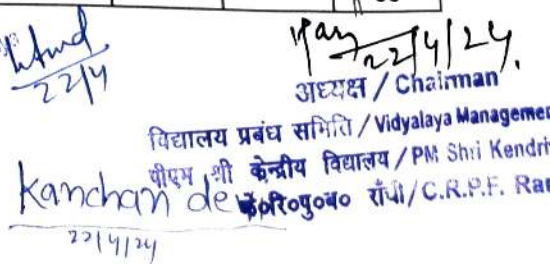 22/4
22/4/24.
अध्यक्ष / Chairman
विद्यालय प्रबंध समिति / Vidyalaya Managemen
पीएम श्री केन्द्रीय विद्यालय / PM Shri Kendri
Kanchan de के०रि०पु०ब० राँची / C.R.P.F. Ran
22/4/24